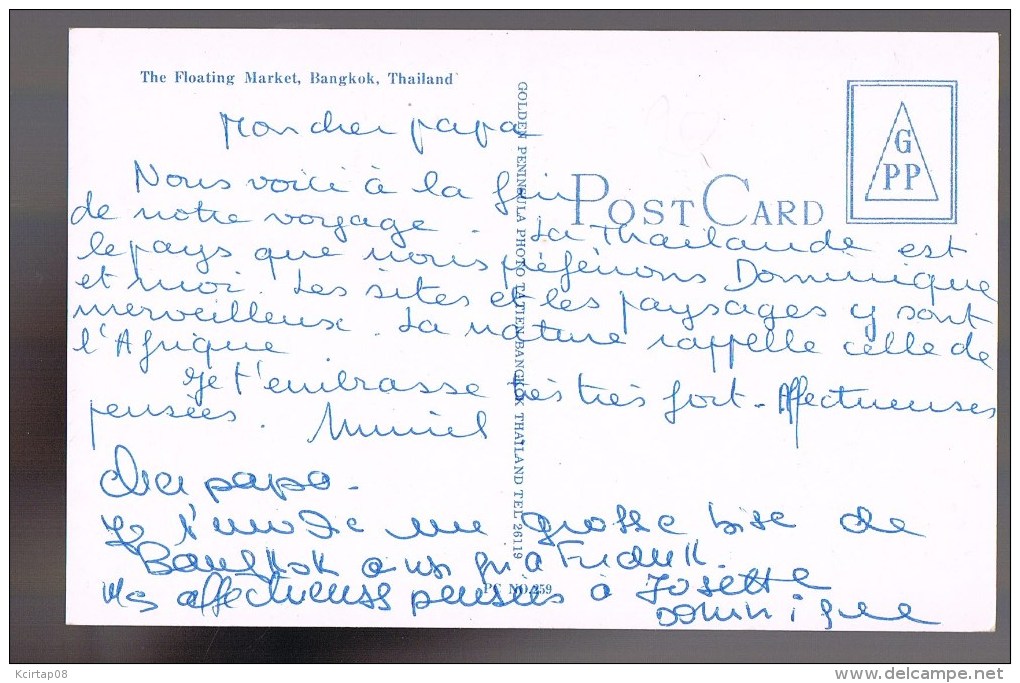 The Floating Market, Bangkok, Thailand
GOLDEN PENINSULA PHOTO STATION BANGKOK THAILAND TEL. 26119
POST CARD
G
PP
Mon cher papa
Nous voici à la fin
de notre voyage. La Thaïlande est
le pays que nous préférons Dominique
et moi. Les sites et les paysages y sont
merveilleux. La nature rappelle celle de
l'Afrique.
Je t'embrasse très très fort. Affectueuses
pensées. Muriel
Cher papa.
Je t'envoie une grosse bise de
Bangkok
Mes affectueuses pensées à Josette
Dominique
PC NO. 259
Kcirtap08
www.delcampe.net